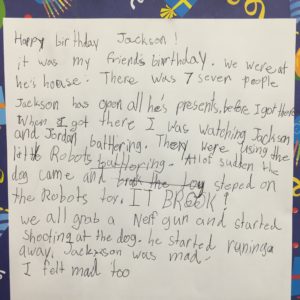 Happy birthday Jackson!
it was my friends birthday. we were at
he's house. There was 7 seven people
Jackson has open all he's presents, before I got there
When I got there I was watching Jackson
and Jordan battering. They were using the
little Robots battering. All of sudden the
dog came and break the toy steped on
the Robots toy. IT BROOK!
we all grab a Neff gun and started
shooting at the dog. he started runinga
away. Jackson was mad.
I felt mad too